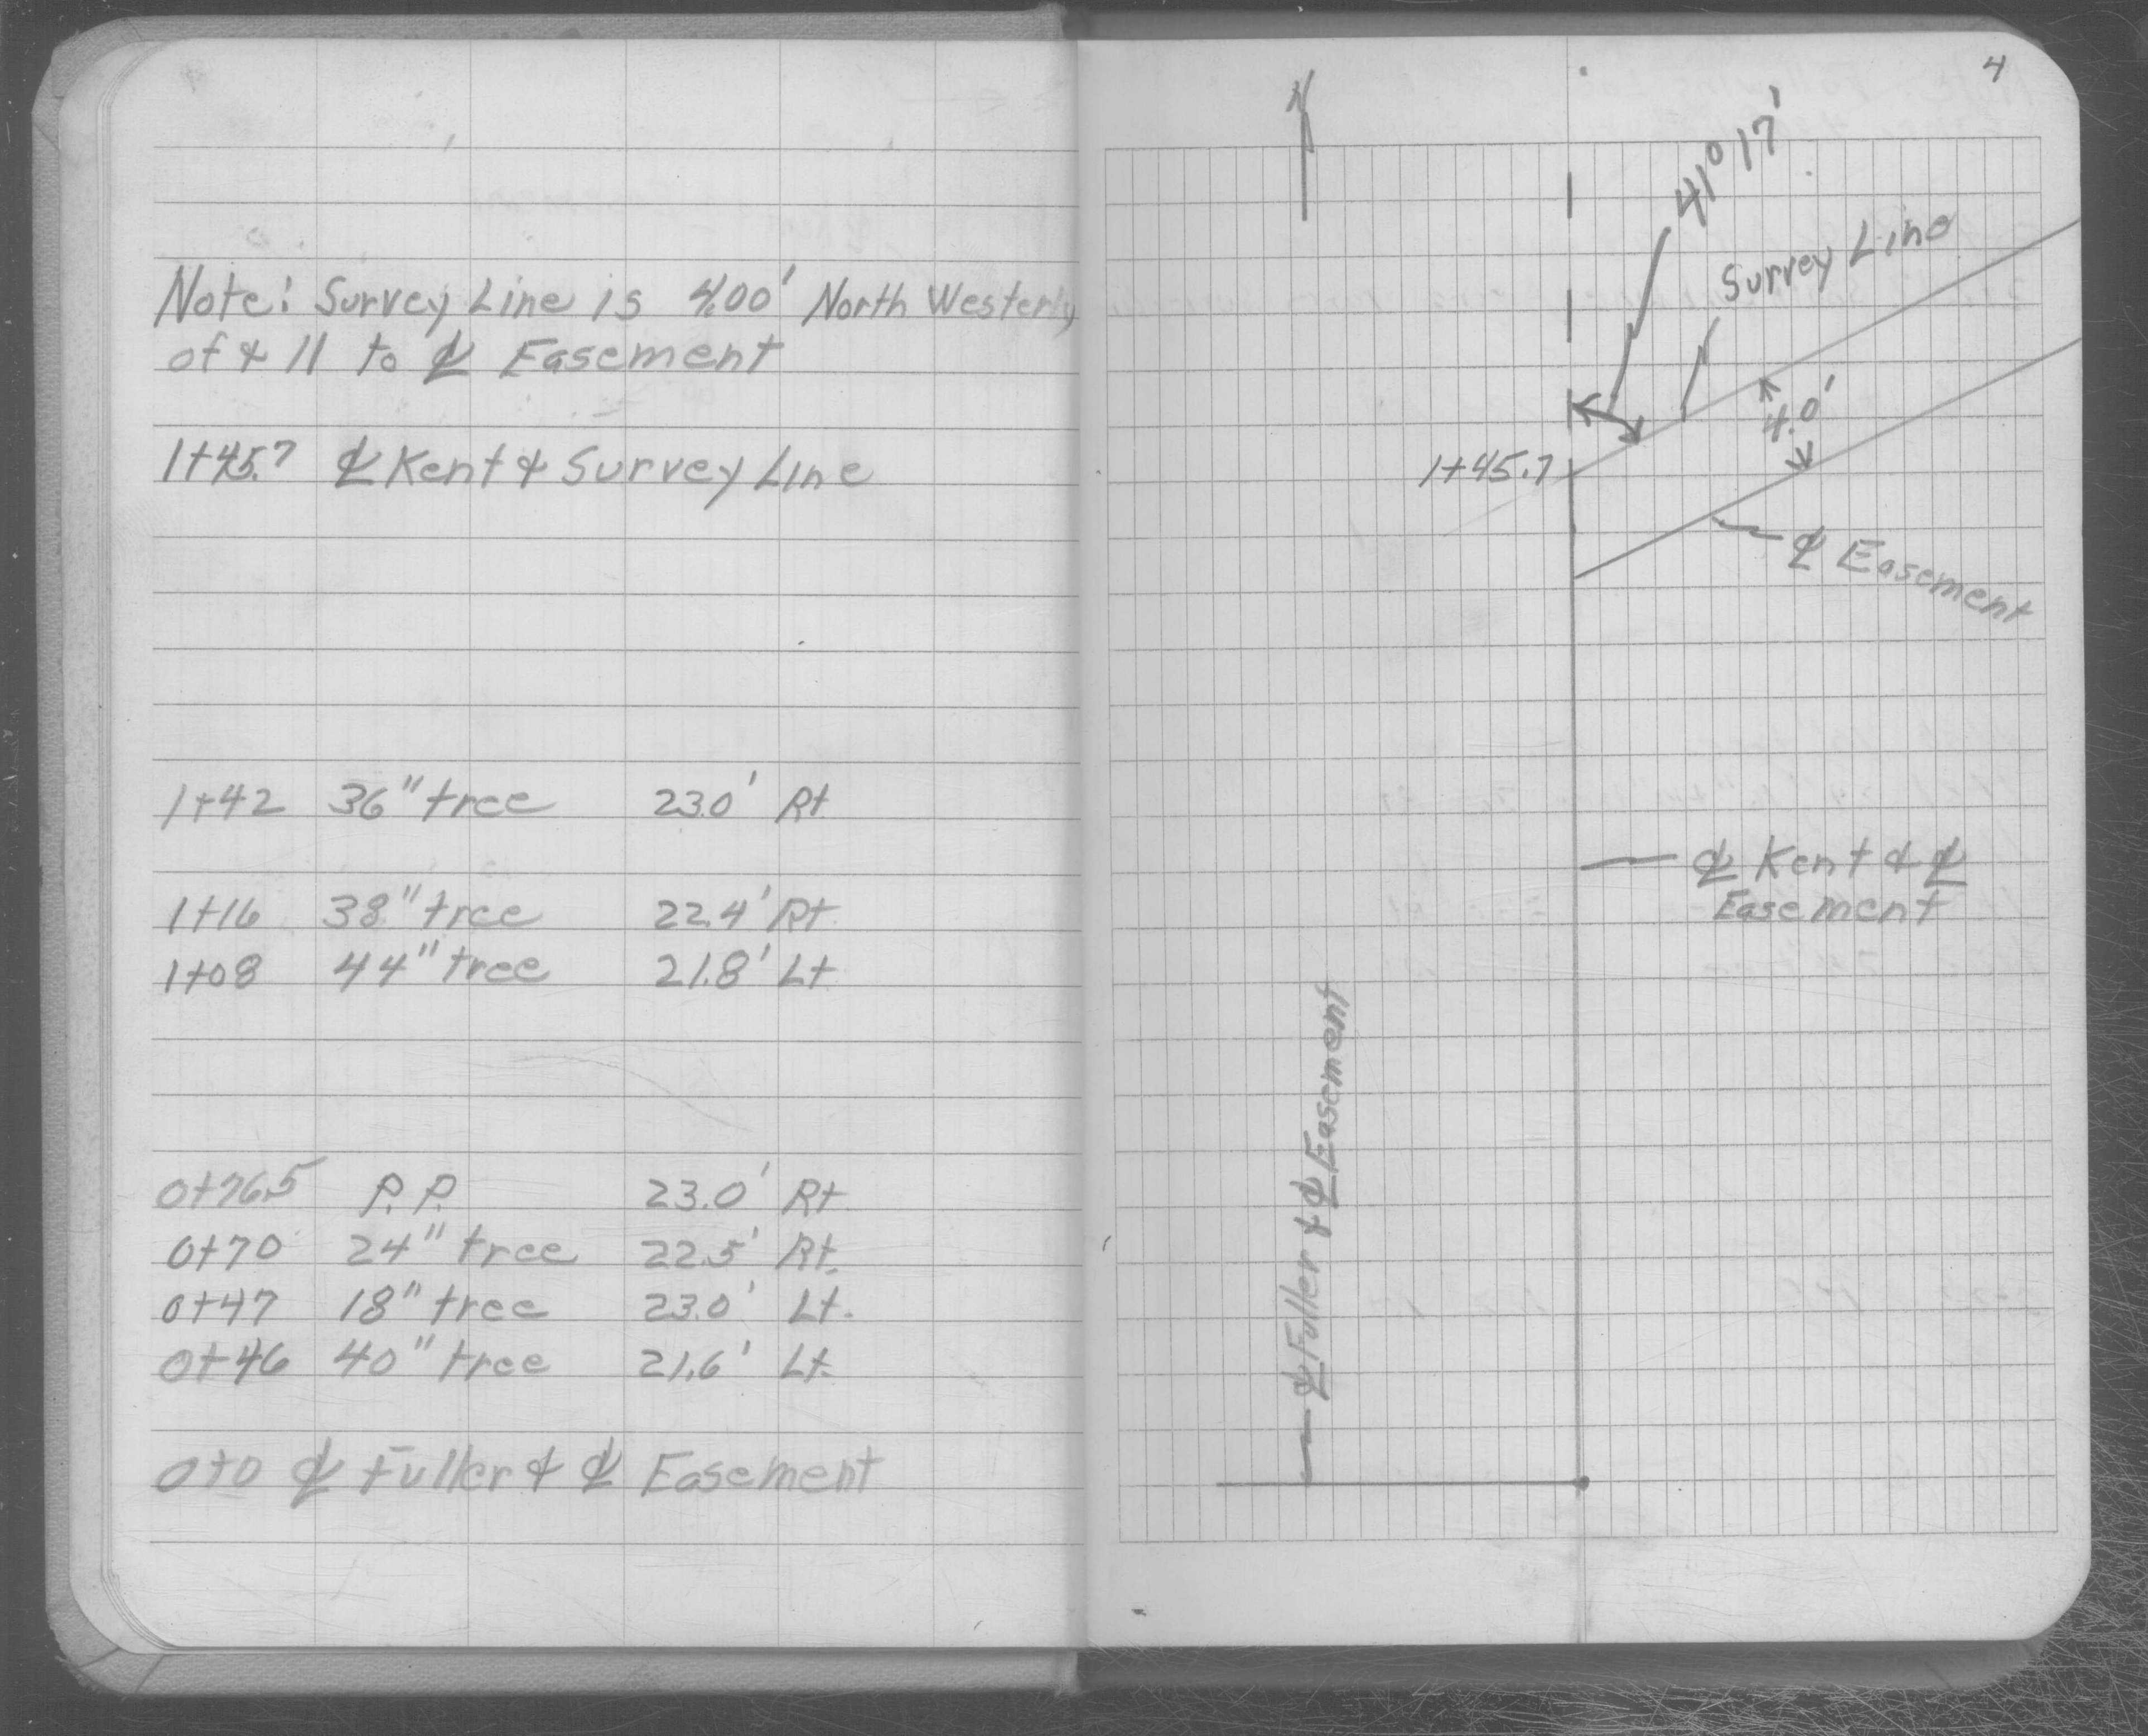 Note: Survey Line is 4.00' North Westerly
of & 11 to ℄ Easement
1+45.7 ℄ Kent & Survey Line
1+42 36" tree 23.0' Rt.
1+16 38" tree 22.4' Rt.
1+08 44" tree 21.8' Lt.
0+76.5 P.P. 23.0' Rt.
0+70 24" tree 22.5' Rt.
0+47 18" tree 23.0' Lt.
0+46 40" tree 21.6' Lt.
0+0 ℄ Fuller & ℄ Easement
4
N
41° 17'
Survey Line
4.0'
1+45.7
℄ Easement
℄ Kent & ℄
Easement
℄ Fuller & ℄ Easement